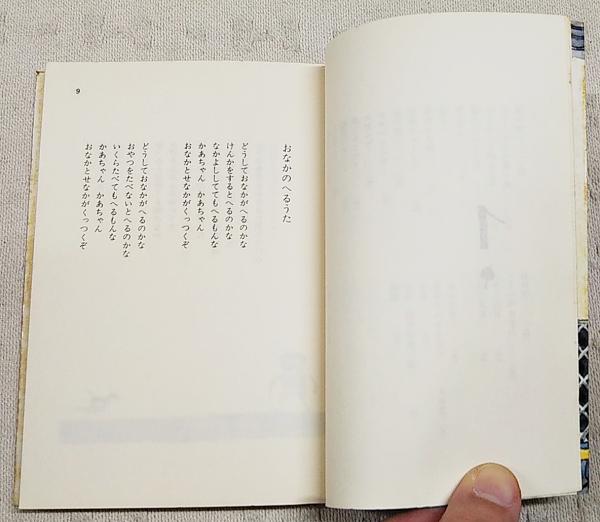 おなかのへるうた
どうしておなかがへるのかな
けんかをするとへるのかな
なかよししててもへるもんな
かあちゃん　かあちゃん
おなかとせなかがくっつくぞ
どうしておなかがへるのかな
おやつをたべないとへるのかな
いくらたべてもへるもんな
かあちゃん　かあちゃん
おなかとせなかがくっつくぞ
9